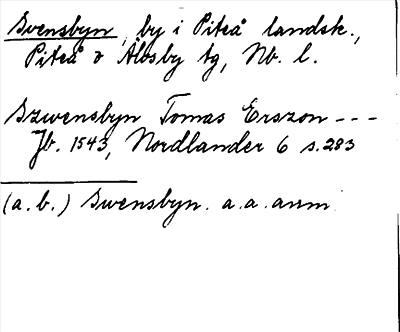 Svensbyn, by i Piteå landsk.,
Piteå o Älvsby tg, Nb. l.
Szwensbyn Tomas Erszon ---
Jb. 1543, Nordlander 6 s. 283
(a. b.) Swensbyn. a. a. anm